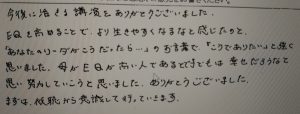 今後に活きる講演をありがとうございました。
EQを高めることで、より生きやすくなるなと感じたのと、
"あなたのリーダがこうだったら…"のお言葉で、「こうでありたい」と強く
思いました。母がEQが高い人であると子どもは幸せだろうなと
思い努力していこうと思いました。ありがとうございました。
まずは、低い所から意識して行っていきます。